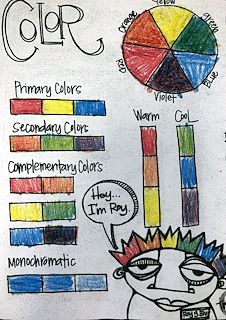 COLOR
Orange
Yellow
green
Red
Blue
Violet
Primary Colors
Secondary Colors
Warm
Cool
Complementary Colors
Hey...
I'm Roy.
Monochromatic